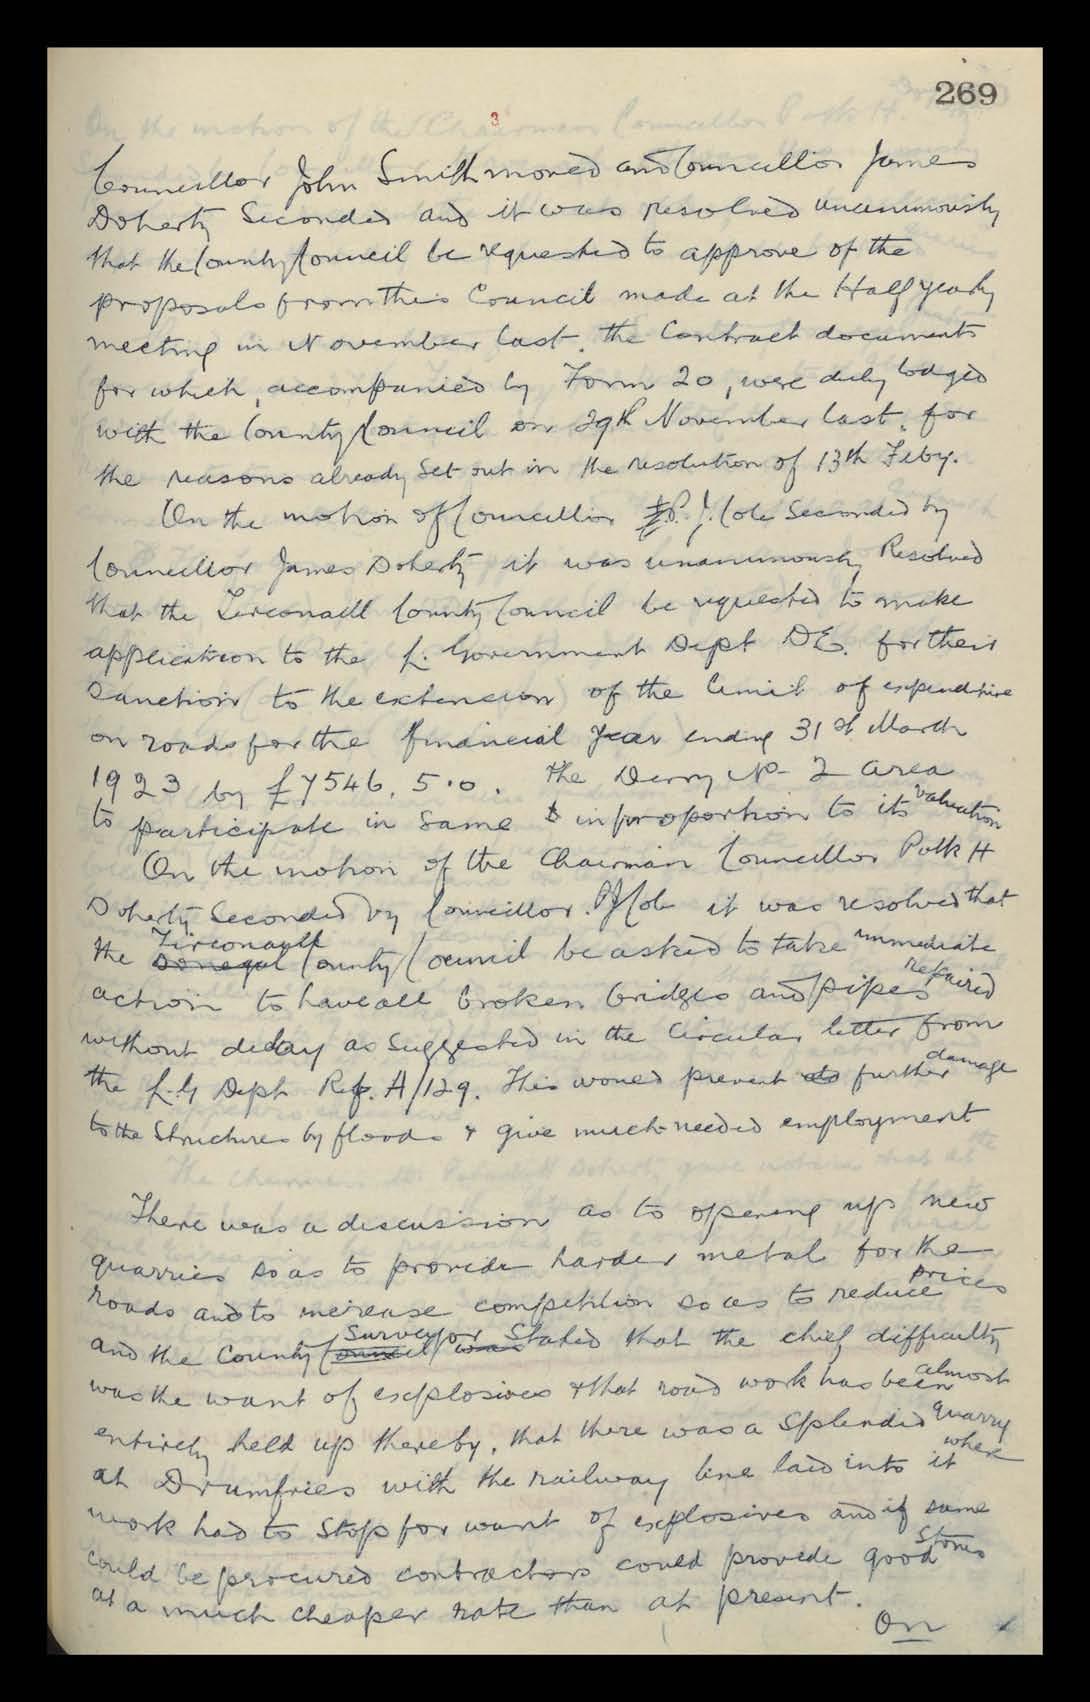 269
3
Councillor John Smith moved and Councillor James
Doherty Seconded and it was resolved unanimously
that the County Council be requested to approve of the
proposals from this Council made at the Half yearly
meeting in November last, the Contract documents
for which, accompanied by Form 20, were duly lodged
with the County Council on 29th November last, for
the reasons already Set out in the resolution of 13th Feby.
On the motion of Councillor P. J. Cole Seconded by
Councillor James Doherty it was unanimously Resolved
that the Tirconaill County Council be requested to make
application to the L. Government Dept DE. for their
Sanction (to the extension) of the limit of expenditure
on roads for the financial year ending 31st March
1923 by £7546. 5. 0. the Derry No 2 area
to participate in same in proportion to its valuation
On the motion of the Chairman Councillor Patk H
Doherty Seconded by Councillor. PJ Cole it was resolved that
Tirconaill
the Donegal County Council be asked to take immediate
action to have all broken bridges and pipes repaired
without delay as Suggested in the Circular letter from
the L.G Dept Ref. A/129. This would prevent further damage
to the Structures by floods & give much needed employment
There was a discussion as to opening up new
quarries so as to provide harder metal for the
roads and to increase competition so as to reduce prices
Surveyor
and the County Council was Stated that the chief difficulty
was the want of explosives & that road work has been almost
entirely held up thereby, that there was a Splendid quarry
at Drumfries with the railway line laid into it where
work had to Stop for want of explosives and if same
could be procured contractors could provide good Stones
at a much cheaper rate than at present.
On